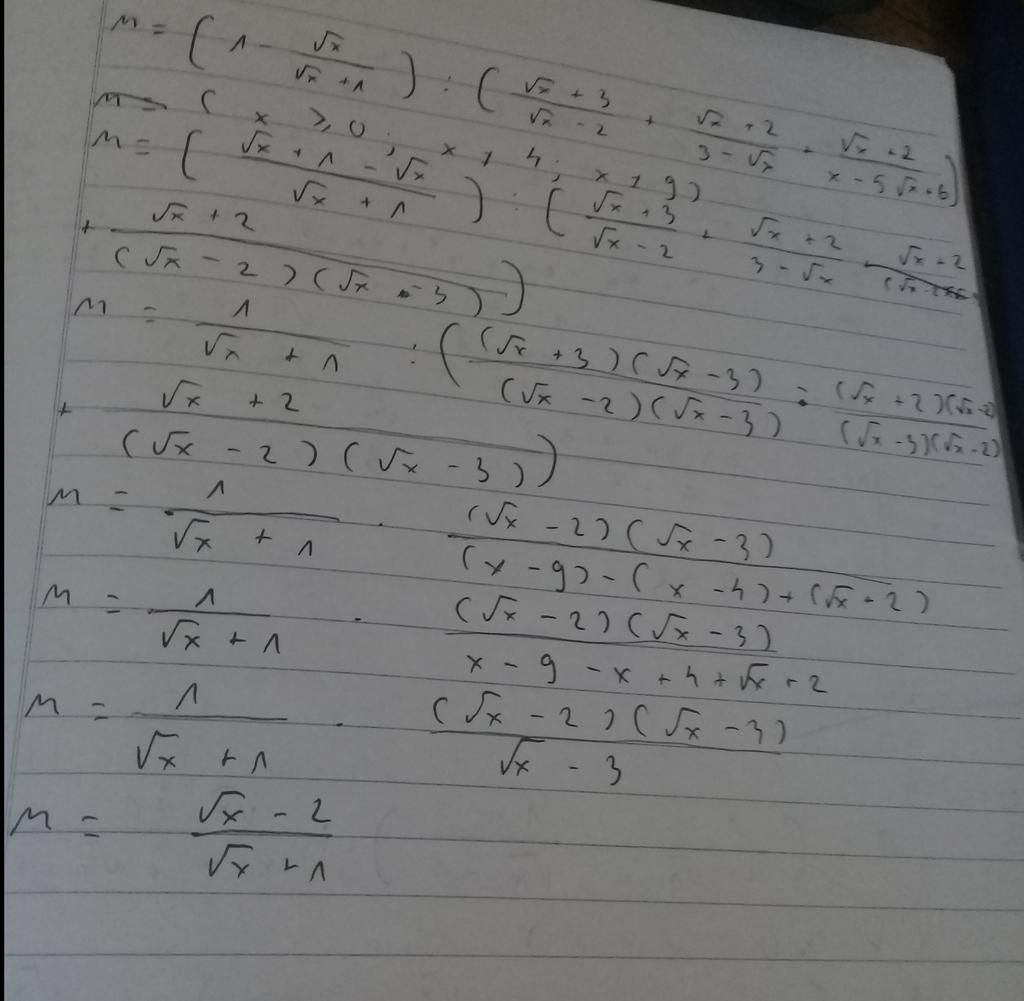 M = ( 1 - √x / (√x + 1) ) : ( (√x + 3) / (√x - 2) + (√x + 2) / (3 - √x) + (√x + 2) / (x - 5√x + 6) )
( x ≥ 0 ; x ≠ 4 ; x ≠ 9 )
M = ( (√x + 1 - √x) / (√x + 1) ) : ( (√x + 3) / (√x - 2) + (√x + 2) / (3 - √x)
+ (√x + 2) / ((√x - 2)(√x - 3)) )
M = 1 / (√x + 1) : ( (√x + 3)(√x - 3) / ((√x - 2)(√x - 3)) - (√x + 2)(√x - 2) / ((√x - 3)(√x - 2))
+ (√x + 2) / ((√x - 2)(√x - 3)) )
M = 1 / (√x + 1) . (√x - 2)(√x - 3) / ((x - 9) - (x - 4) + (√x + 2))
M = 1 / (√x + 1) . (√x - 2)(√x - 3) / (x - 9 - x + 4 + √x + 2)
M = 1 / (√x + 1) . (√x - 2)(√x - 3) / (√x - 3)
M = (√x - 2) / (√x + 1)